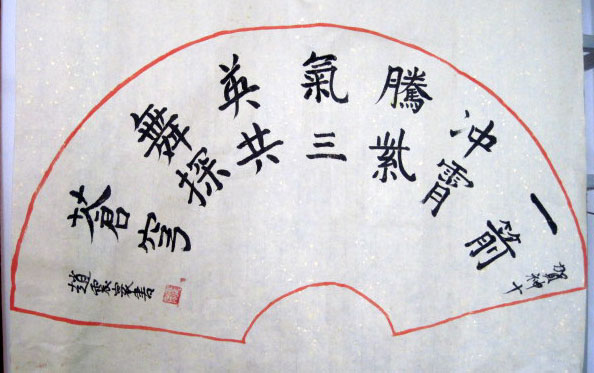 賀神十
一箭
冲霄
騰紫
氣三
英共
舞探
蒼穹
趙震寰書